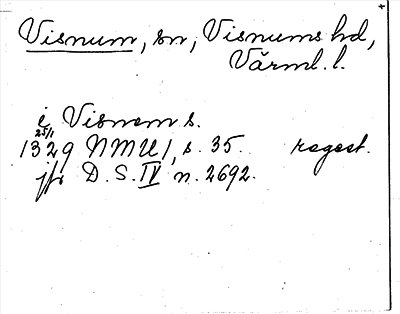 Visnum, sn, Visnums hd,
Värml. l.
i Visnem s.
25/1
1329 NMU 1, s. 35. regest.
jfr D. S. IV n. 2692.